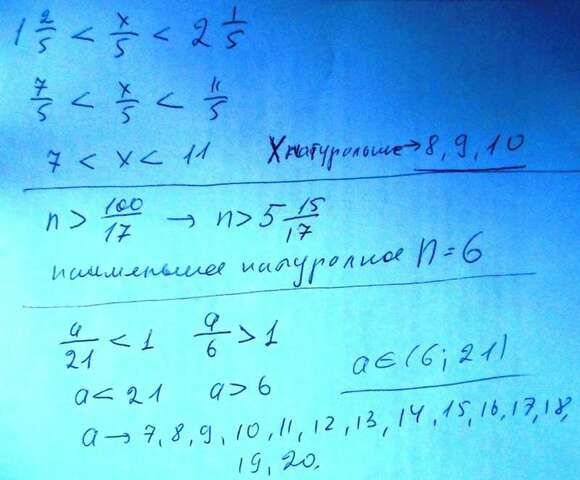 1 2/5 < x/5 < 2 1/5
7/5 < x/5 < 11/5
7 < x < 11   X натуральные → 8, 9, 10
n > 100/17 → n > 5 15/17
наименьшее натуралное n = 6
a/21 < 1   a/6 > 1
a < 21   a > 6   a ∈ (6; 21)
a → 7, 8, 9, 10, 11, 12, 13, 14, 15, 16, 17, 18,
19, 20.